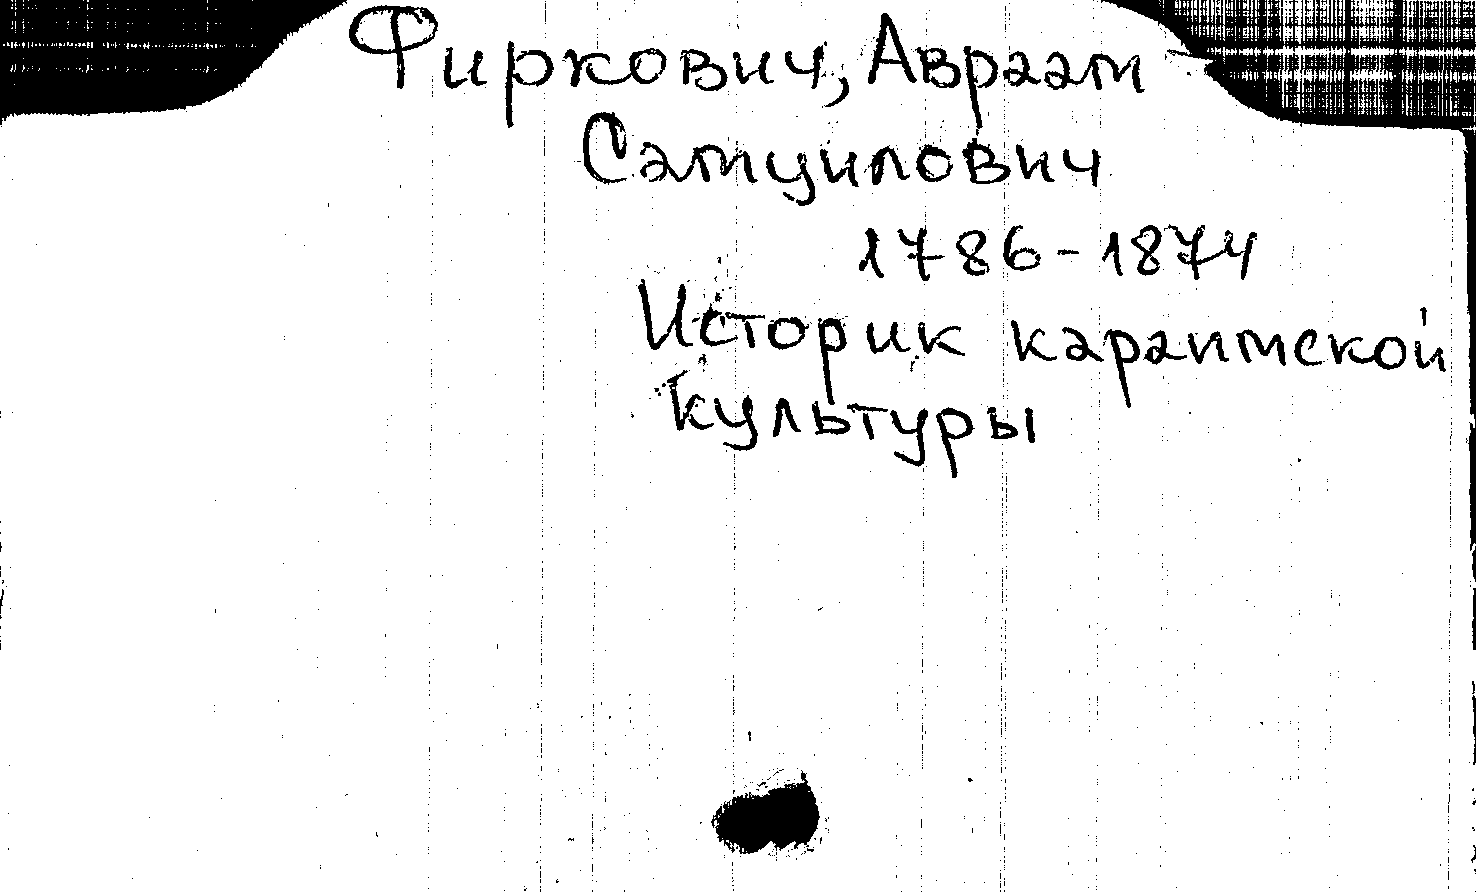 Фиркович, Авраам
Самуилович
1786-1874
Историк караимской
культуры